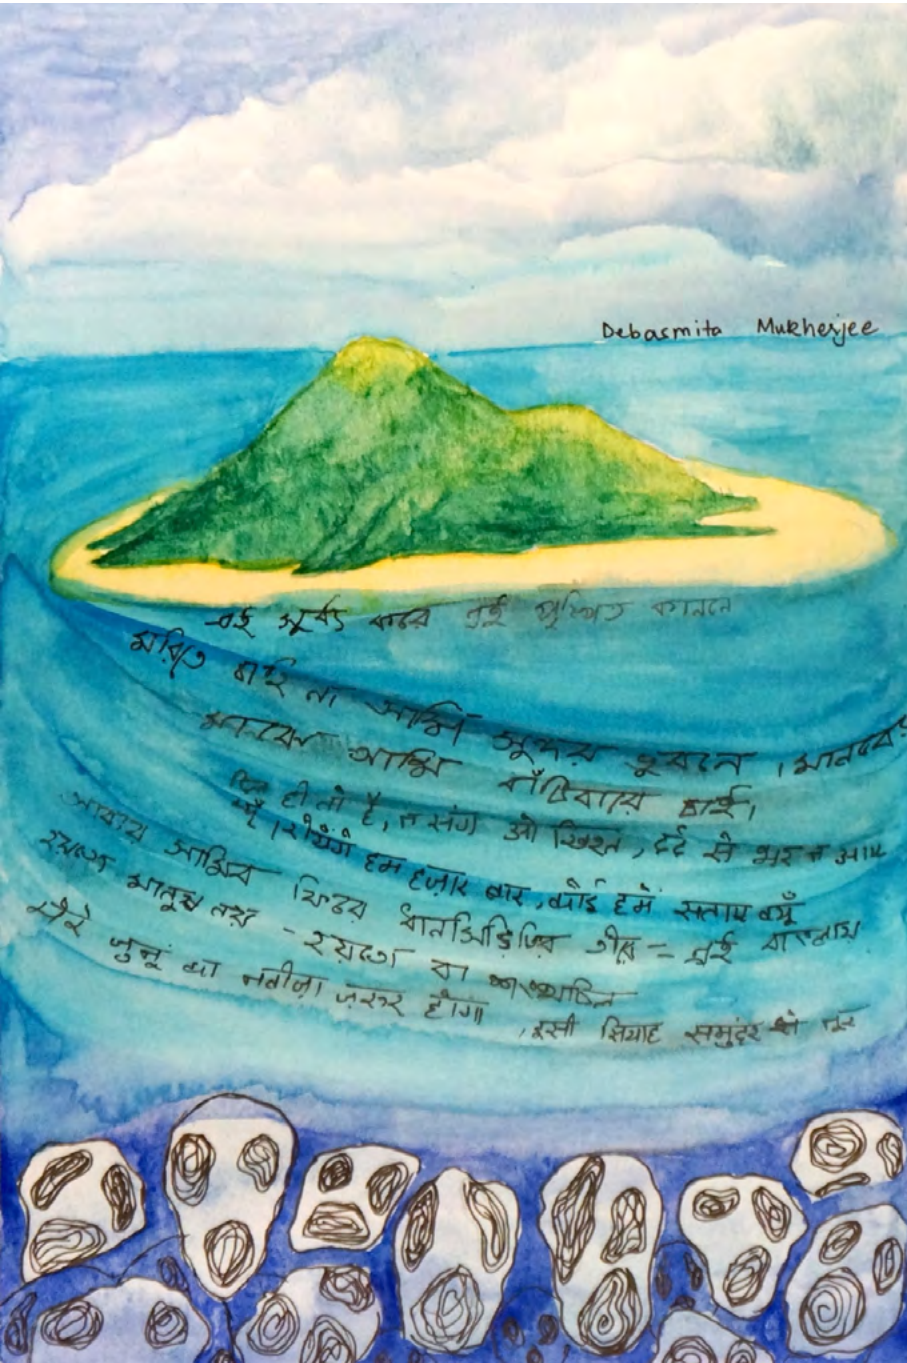 Debasmita Mukherjee
এই সূর্য করে এই পুষ্পিত কাননে
মরিতে চাহি না আমি সুন্দর ভুবনে । মানবের
মানবের আমি বাঁচিবারে চাই।
दिल ही तो है, न संग ओ खिश्त, दर्द से भर न आए
क्यूँ । रोयेंगे हम हज़ार बार, कोई हमें सताए क्यूँ
আবার আসিব ফিরে ধানসিঁড়িটির তীরে - এই বাংলায়
হয়তো মানুষ নয় - হয়তো বা শঙ্খচিল
मेरे जुनूं का नतीजा ज़रूर होगा , इसी सियाह समुंदर से नूर